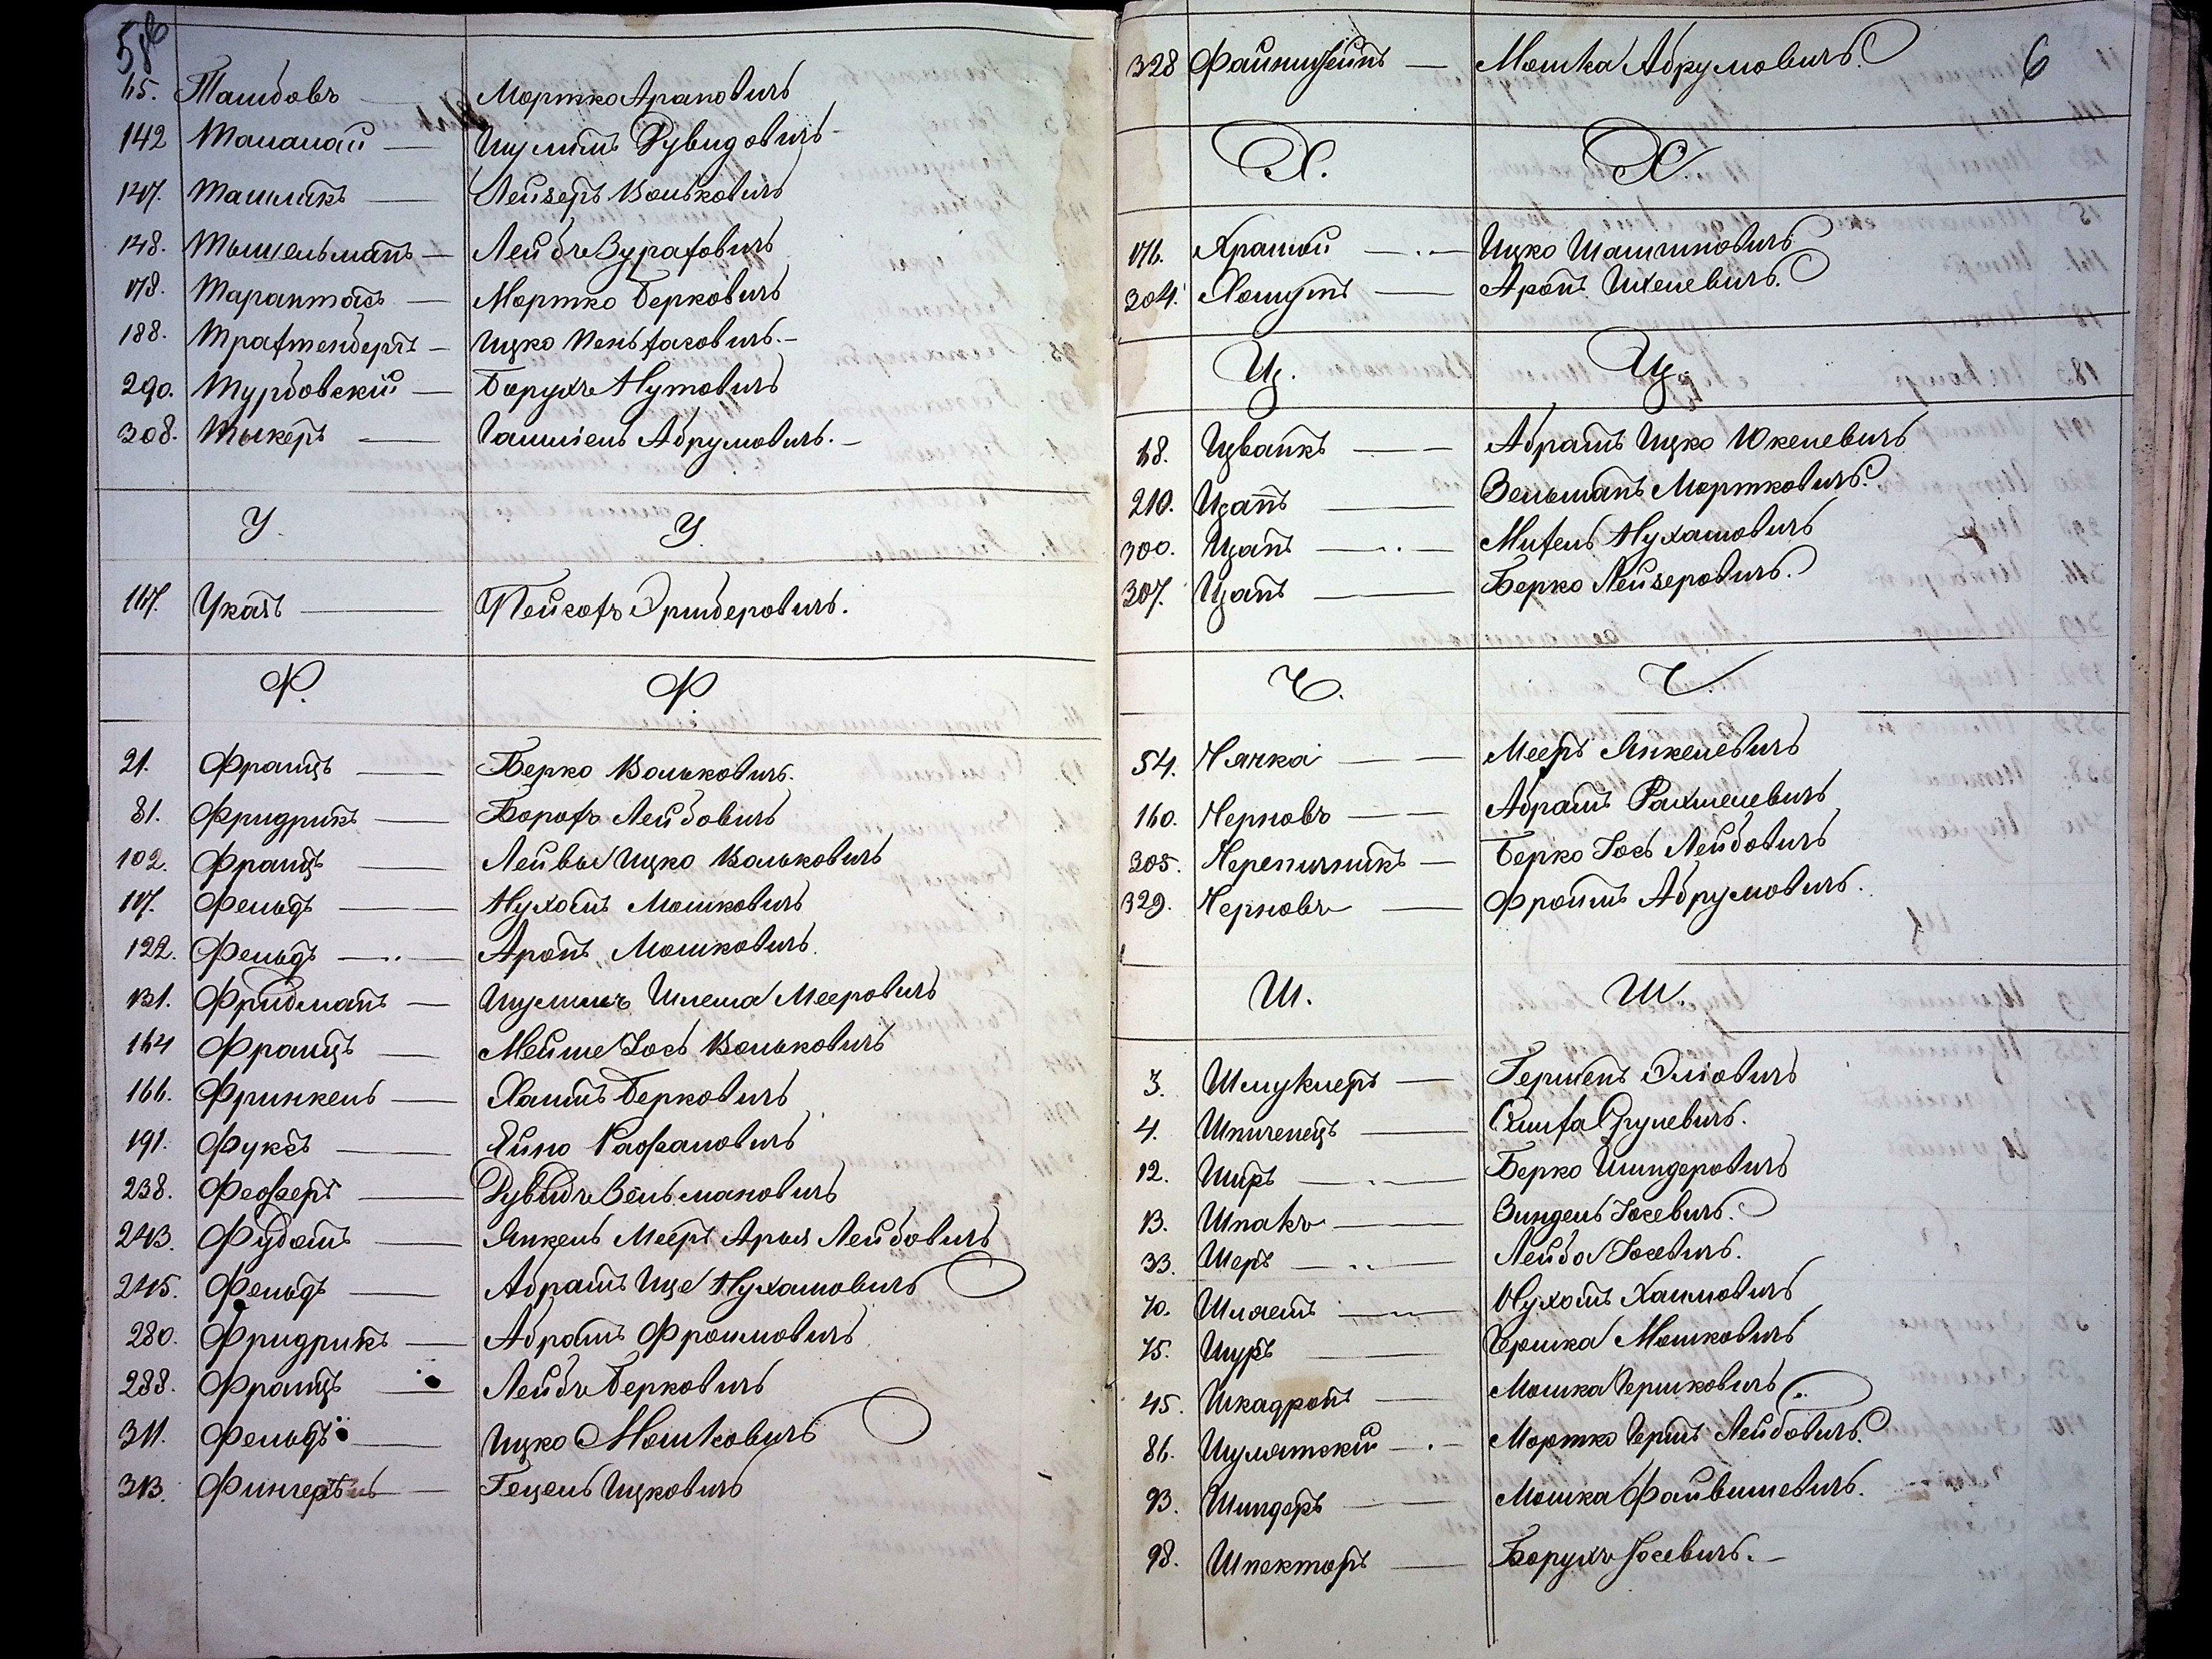 586
115. Ташовъ — Мортко Ароновичъ
142 Таналай — Шулимъ Дувидовичъ
147. Ташликъ — Лейзеръ Вольковичъ
148. Тышельманъ — Лейбъ
178. Тарантасъ — Мортко Берковичъ
188. Трахтенбергъ — Ицко
290. Турбовскій — Борухъ Нутовичъ
308. Тыкеръ — Абрумовичъ.
У. У.
117. Укачъ — Пейсахъ
Ф. Ф.
21. Францъ — Берко Вольковичъ.
81. Фридрикъ — Борохъ Лейбовичъ
102. Францъ — Ицко Вольковичъ
117. Фельдъ — Нухомъ Мошковичъ
122. Фельдъ — Аронъ Мошковичъ.
131. Фридманъ — Шулимъ Шлема Мееровичъ
164 Францъ — Мейше Іось Вольковичъ
166. Фринкель — Хаимъ Берковичъ
191. Фуксъ — Ейно
238. Феферъ — Дувидъ Зельмановичъ
243. Фудымъ — Янкель Мееръ Арья Лейбовичъ
245. Фельдъ — Абрамъ Ице Нухамовичъ
280. Фридрикъ — Абрамъ Фроимовичъ
288. Францъ — Лейбъ Берковичъ
311. Фельдъ — Ицко Мошковичъ
313. — Гецель Ицковичъ
328 Файнштейнъ — Мошка Абрумовичъ.
6
Х. Х.
176. Храпой — Ицко
304. Хомутъ — Аронъ
Ц. Ц.
18. Цванкъ — Абрамъ Ицко Юкелевичъ
210. Цапъ — Зельманъ Мортковичъ.
300. Цапъ — Михель Нухамовичъ
307. Цапъ — Берко Лейзеровичъ.
Ч. Ч.
54. Чачка — Мееръ Янкелевичъ
160. Черновъ — Абрамъ Рахмелевичъ
305. Черепичникъ — Берко Іось Лейбовичъ
329. Черновъ — Фроимъ Абрумовичъ.
Ш. Ш.
3. Шмуклеръ — Гершенъ Эліовичъ
4. Шпиченецъ — Срулевичъ.
12. Широ — Берко Шиндеровичъ
13. Шпакъ — Зиндель Іосевичъ.
33. Шеръ — Лейба Іосевичъ.
70. Шляемъ — Нухомъ Хаимовичъ
75. Шуръ — Гершка Мошковичъ
45. Шкадронъ — Мошка Гершковичъ
86. Шулятскій — Мортко Гершъ Лейбовичъ.
93. Шиндеръ — Мошка Файвишевичъ.
98. Шпекторъ — Борухъ Іосевичъ.